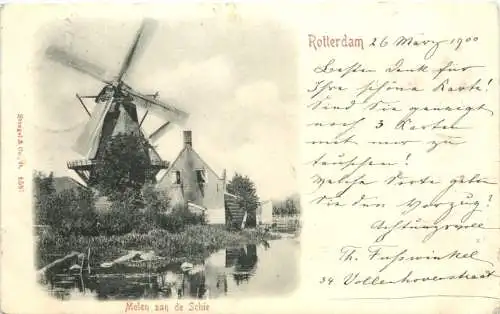 Rotterdam 26 März 1900
Besten Dank für
Ihre schöne Karte!
Sind Sie geneigt
noch 3 Karten
mit mir zu
tauschen!
Welche Sorte geben
Sie den Vorzug?
Achtungsvoll
Th. Fuhswinkel
34 Vollenhovenstraat
Stengel & Co., 
Molen aan de Schie